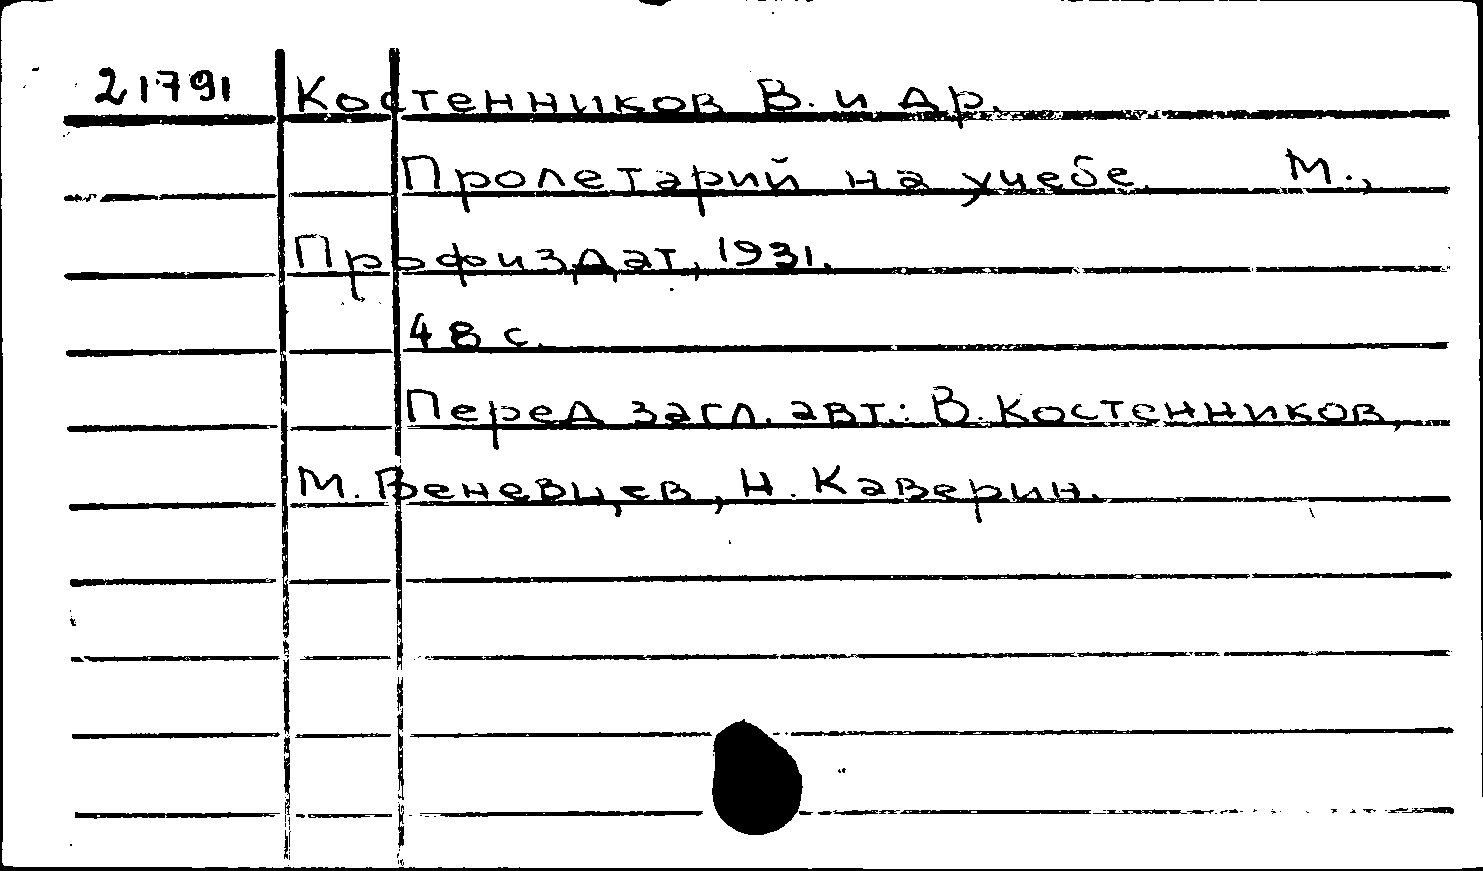 21791 Костенников В. и др.
Пролетарий на учебе М.,
Профиздат, 1931.
48 с.
Перед загл. авт.: В. Костенников,
М. Веневцев, Н. Каверин.